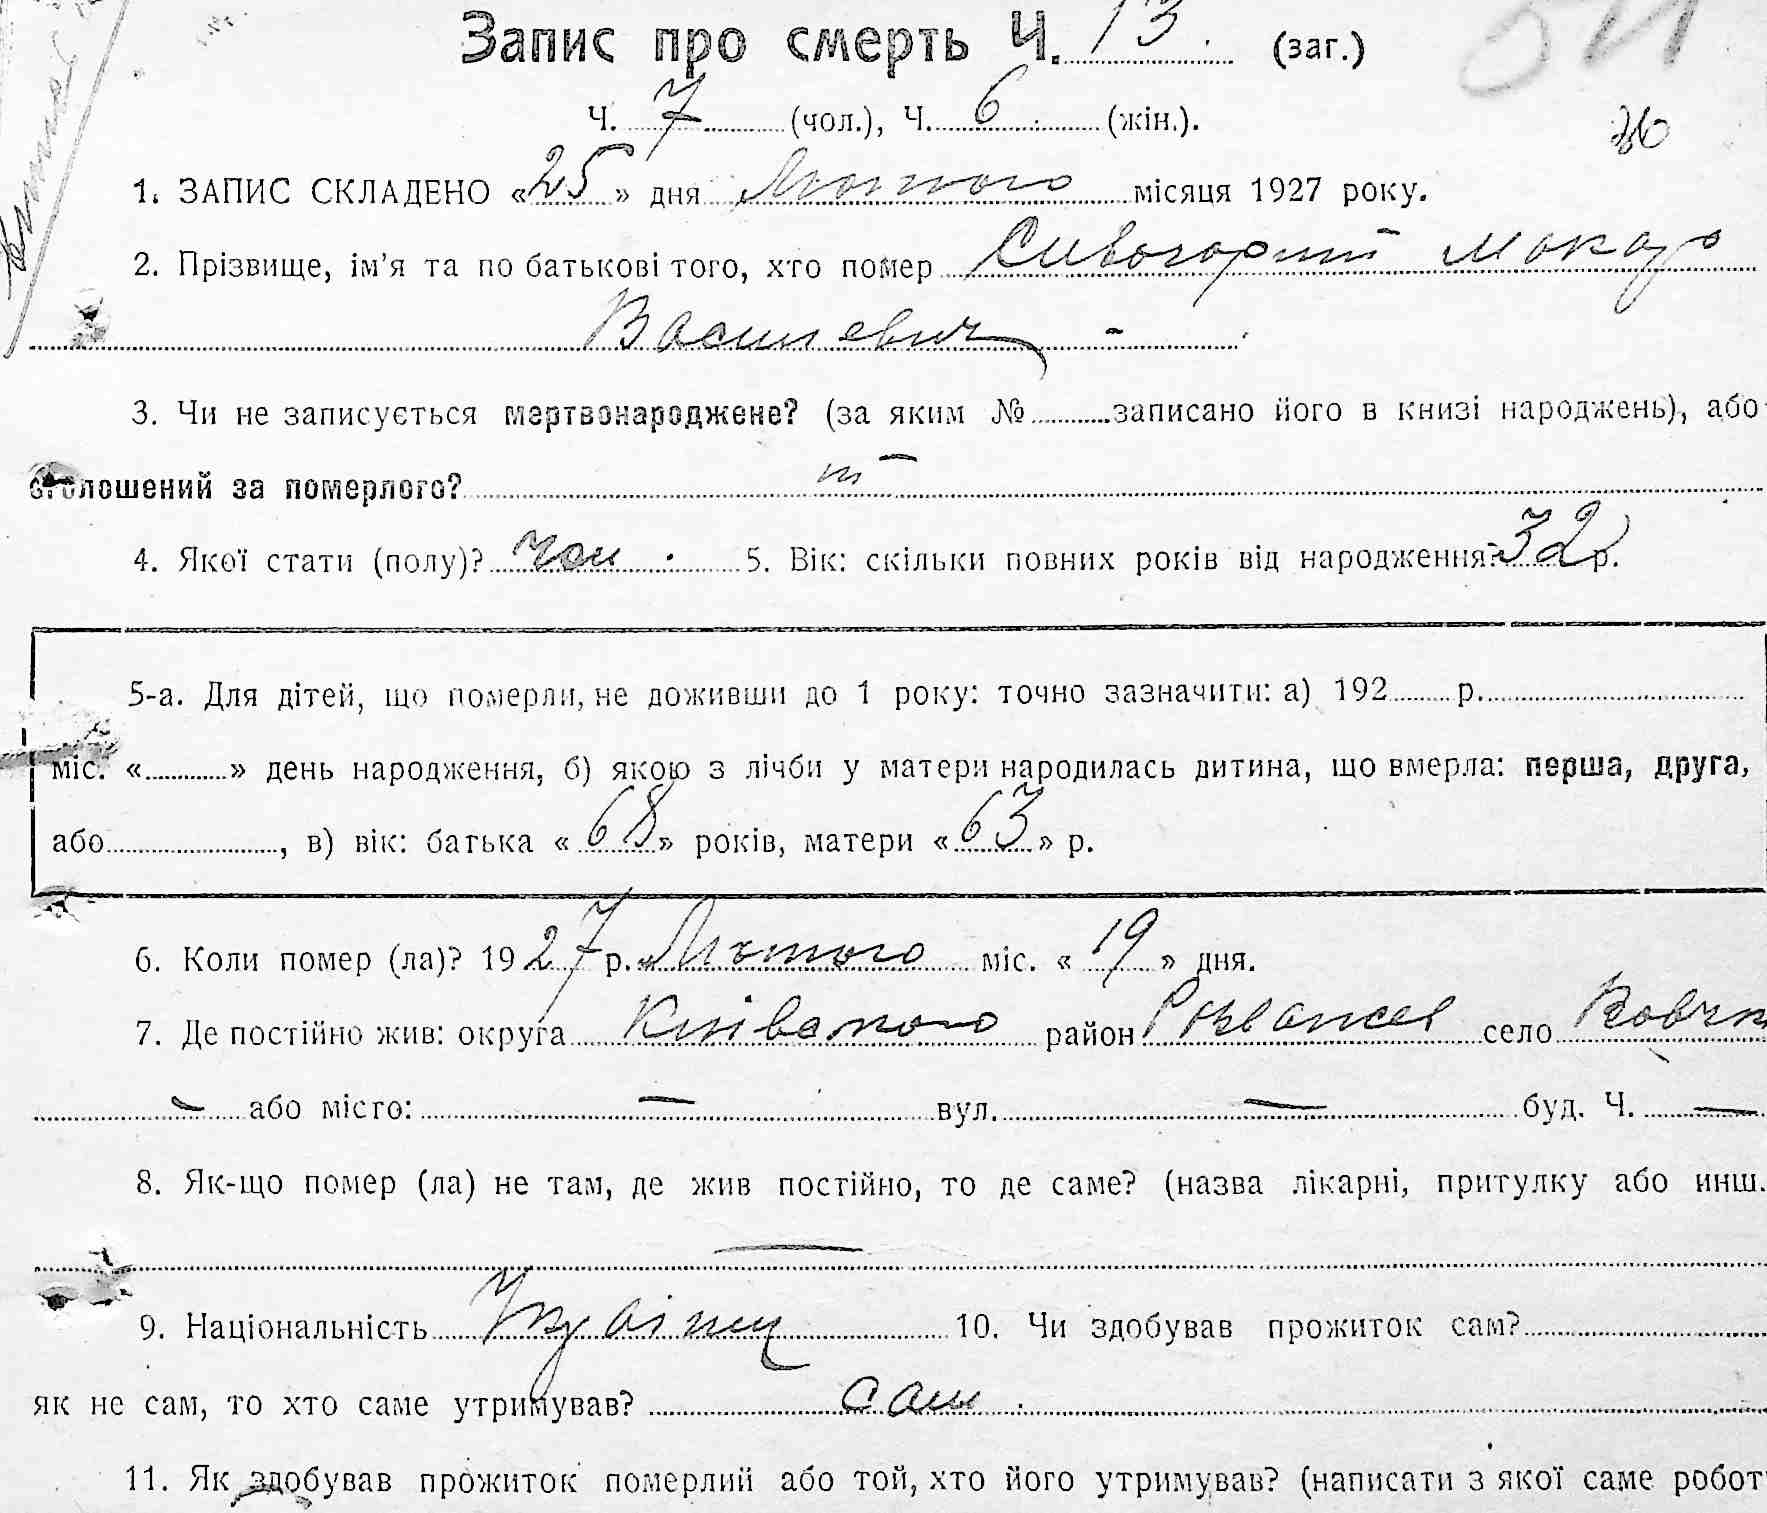 Запис про смерть Ч. 13. (заг.)
Ч. 7 (чол.), Ч. 6 (жін.).
1. ЗАПИС СКЛАДЕНО «25» дня Лютого місяця 1927 року.
2. Прізвище, ім'я та по батькові того, хто помер Сивогорит Макар
Васильевич -
3. Чи не записується мертвонароджене? (за яким № записано його в книзі народжень), або
оголошений за померлого? —
4. Якої стати (полу)? чол. 5. Вік: скільки повних років від народження? 32 р.
5-а. Для дітей, що померли, не доживши до 1 року: точно зазначити: а) 192 р.
міс. « » день народження, б) якою з лічби у матери народилась дитина, що вмерла: перша, друга,
або , в) вік: батька «68» років, матери «63» р.
6. Коли помер (ла)? 1927 р. Лютого міс. «19» дня.
7. Де постійно жив: округа Київського район село
— або місто: — вул. — буд. Ч. —
8. Як-що помер (ла) не там, де жив постійно, то де саме? (назва лікарні, притулку або инш.
—
9. Національність Українец 10. Чи здобував прожиток сам?
як не сам, то хто саме утримував? сам.
11. Як здобував прожиток померлий або той, хто його утримував? (написати з якої саме робот